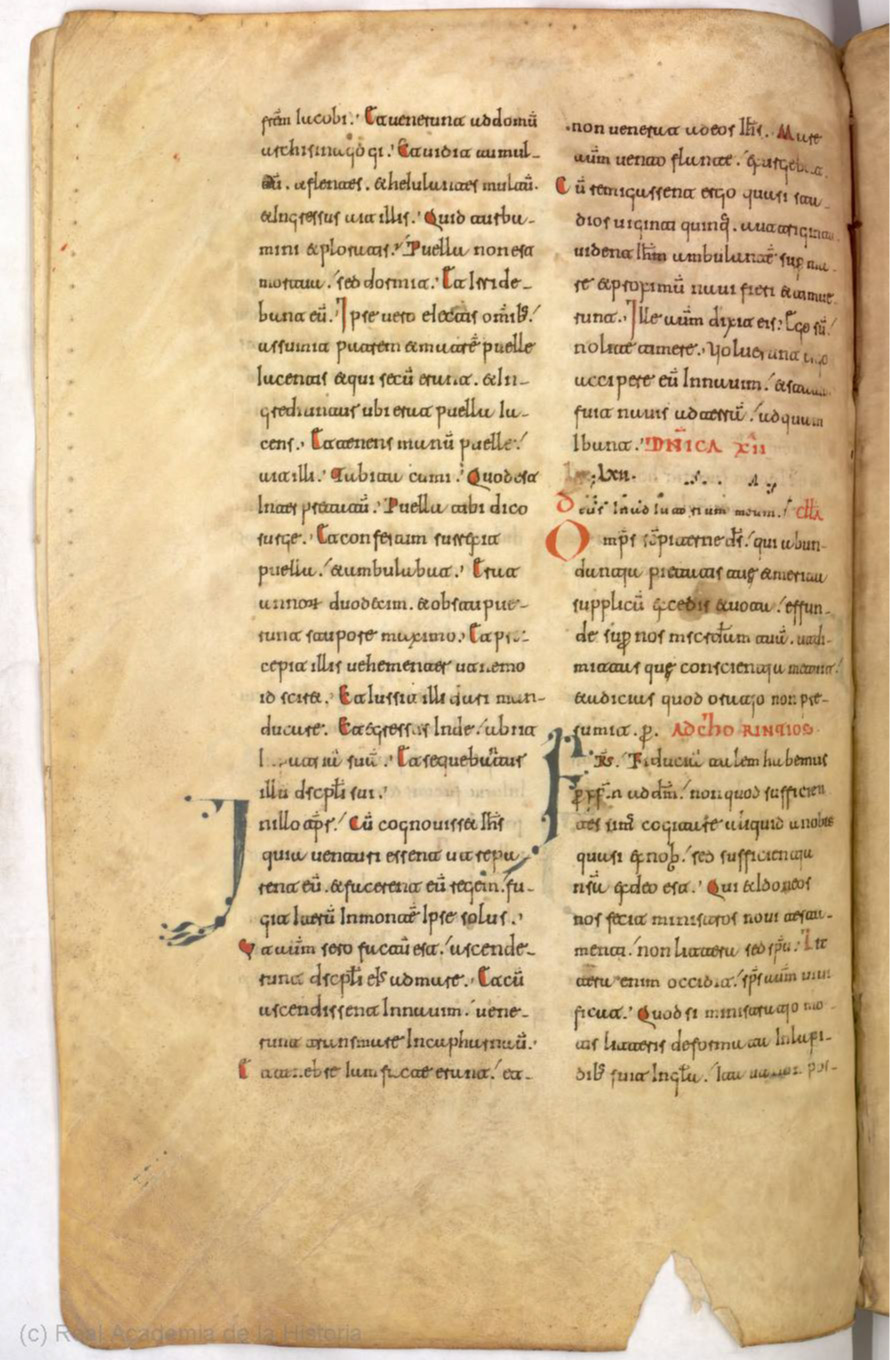 frām Iacobi. Et uenerunt ad domū
archisinagogi. Et uidit tumul-
tū. et flentes. et heiulantes multū.
et Ingressus ait illis. Quid turba-
mini et ploratis. Puella non est
mortua. sed dormit. Et Irride-
bant eū. Ipse uero eiectis omīb;
assumit patrem et matrē puelle
Iacentis et qui secū erant. et In-
grediuntur ubi erat puella Ia-
cens. Et tenens manū puelle.
ait illi. Tabita cumi. Quod est
Interpretatū. Puella tibi dico
surge. Et confestim surrexit
puella. et ambulabat. Erat
annor duodecim. et obstupue-
runt stupore maximo. Et pre-
cepit illis uehementer ut nemo
id sciret. Et Iussit illi dari man-
ducare. Et egressus Inde abiit
suā. Et sequebantur
illū dscpli sui.
Jn illo tprē. Cū cognouisset Ihs
quia uenturi essent ut rape-
rent eū. et facerent eū regem. fu-
git Iterū In montē Ipse solus.
Vt autm sero factū est. ascende-
runt dscpli eis ad mare. Et cū
ascendissent In nauim. uene-
runt transmare In capharnaū.
Et tenebre Iam facte erant. et
non uenerat ad eos Ihs. Mare
autm uento flante. exurgebat.
Cū remigassent ergo quasi sta-
dios uiginti quinq. aut triginta
uident Ihm ambulantē supra ma-
re et proximū naui fieri et timue-
runt. Ille autm dixit eis. Ego sū.
nolite timere. Voluerunt ergo
accipere eū In nauim. et statim
fuit nauis ad terrā. ad quam
Ibant. DNICA XII
LXII.
Deus In adiutorium meum. cllā
Omps sēpiterne ds. qui abun-
dantia pietatis tuę et merita
supplicū excedis et uota. effun-
de supra nos mscrdiam tuā. ut di-
mittas quę conscientia metuit.
et adicias quod oratio non pre-
sumit. p. AD CHORINTIOS
Frs. Fiduciā autem habemus
p xpm ad dm. non quod sufficien-
tes sims cogitare aliquid a nobis
quasi ex nob. sed sufficientia
nsā ex deo est. Qui et Idoneos
nos fecit ministros noui testa-
menti. non littera sed spū. Lit-
tera enim occidit. sps autm uiui-
ficat. Quod si ministratio mor-
tis litteris deformata In lapi-
dib; fuit In gla. Ita ut non pos-
(c) Real Academia de la Historia